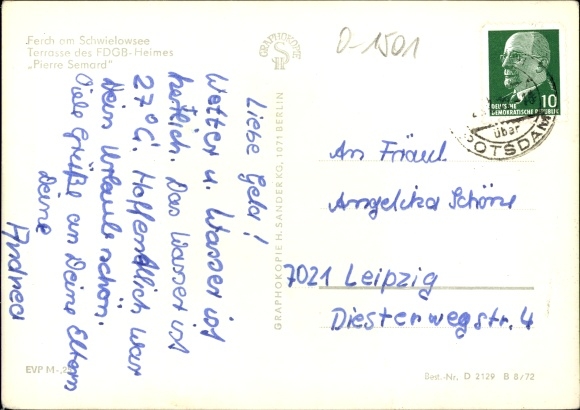 Ferch am Schwielowsee
Terrasse des FDGB-Heimes
„Pierre Semard“
GRAPHOKOPIE
D-1501
DEUTSCHE
DEMOKRATISCHE REPUBLIK
10
über
POTSDAM
Liebe Gela!
Wetter u. Wasser ist
herrlich. Das Wasser ist
27°C. Hoffentlich war
Dein Urlaub schön.
Viele Grüße an Deine Eltern
Deine
Andrea
GRAPHOKOPIE H. SANDER KG, 1071 BERLIN
An Fräul.
Angelika Schöne
7021 Leipzig
Diesterwegstr. 4
EVP M -,20
Best.-Nr. D 2129 B 8/72